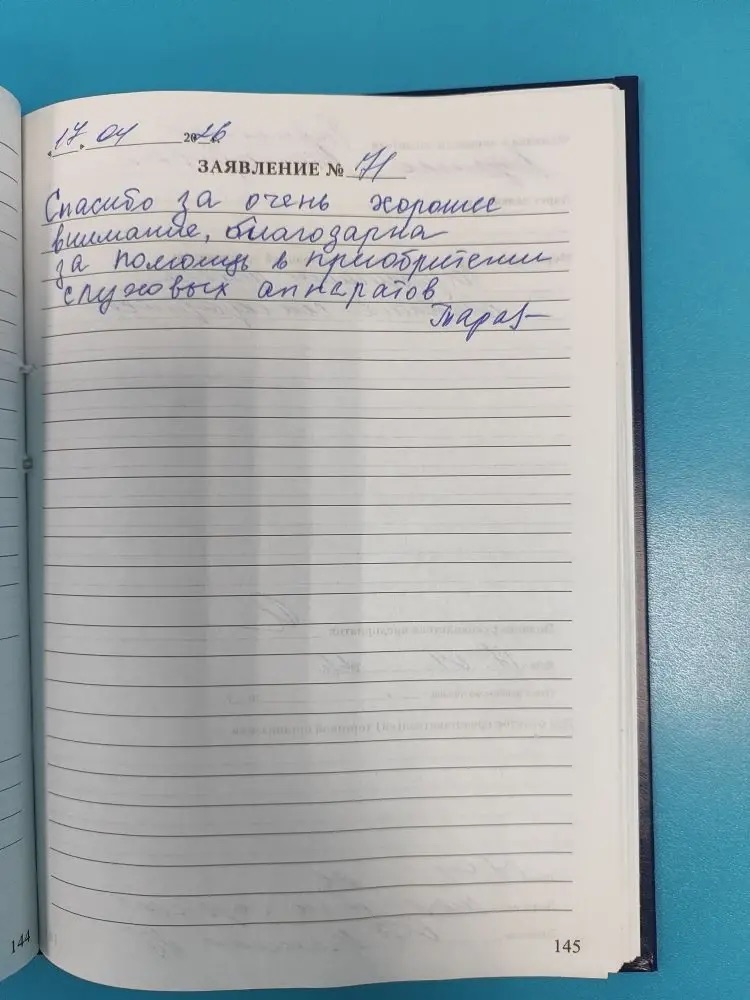 17. 04 2026
ЗАЯВЛЕНИЕ № 71
Спасибо за очень хорошее
внимание, благодарна
за помощь в приобритении
слуховых аппаратов
144
145